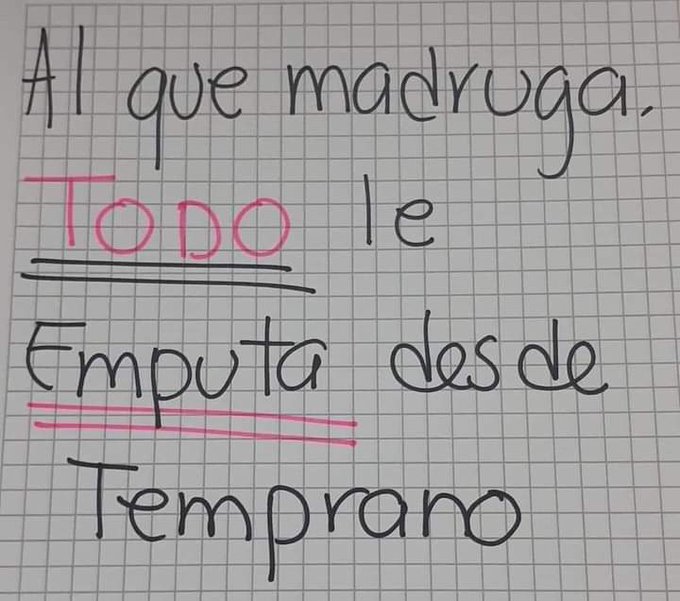 Al que madruga.
TODO le
Emputa desde
Temprano